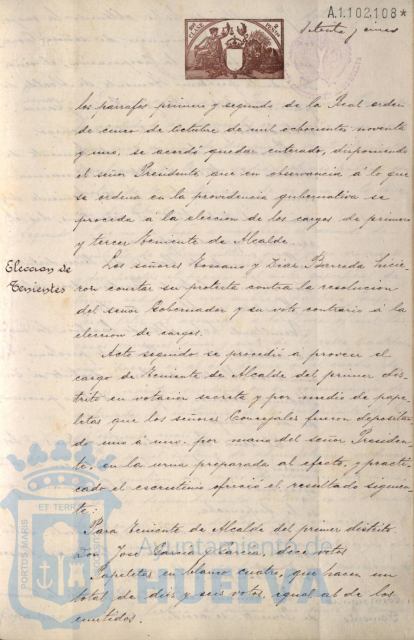 A.1.102.108*
los párrafos primero y segundo de la Real orden
de cinco de Octubre de mil ochocientos noventa
y uno, se acordó quedar enterado, disponiendo
el señor Presidente que en observancia á lo que
se ordena en la providencia gubernativa se
proceda á la eleccion de los cargos de primero
y tercer Teniente de Alcalde.
Eleccion de
Tenientes
Los señores Toscano y Diaz Barreda hicie-
ron constar su protesta contra la resolucion
del señor Gobernador y su voto contrario á la
eleccion de cargos.
Acto segundo se procedió a proveer el
cargo de Teniente de Alcalde del primer dis-
trito en votacion secreta y por medio de pape-
letas que los señores Concejales fueron depositan-
do uno á uno, por mano del señor Presiden-
te, en la urna preparada al efecto, y practi-
cado el escrutinio ofreció el resultado siguien-
te:
Para Teniente de Alcalde del primer distrito
Don José Garcia y Garcia, doce votos
Papeletas en blanco cuatro, que hacen un
total de diez y seis votos, igual al de los
emitidos.
PORTUS MARIS
ET TERRÆ
Ayuntamiento de
HUELVA